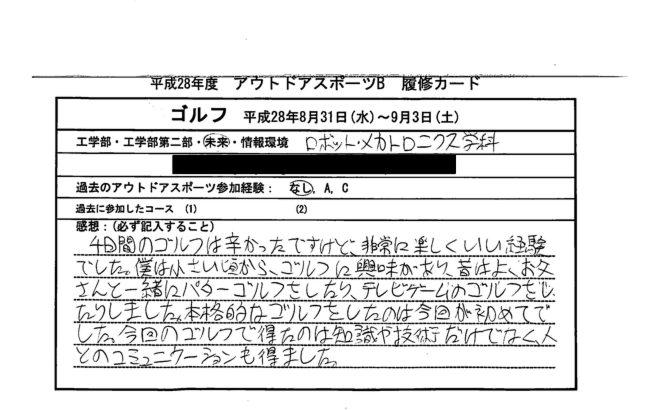 平成28年度 アウトドアスポーツB 履修カード
ゴルフ 平成28年8月31日(水)～9月3日(土)
工学部・工学部第二部・未来・情報環境 ロボット・メカトロニクス学科
過去のアウトドアスポーツ参加経験: なし, A, C
過去に参加したコース (1) (2)
感想:(必ず記入すること)
4日間のゴルフは辛かったですけど、非常に楽しくいい経験
でした。僕は小さい頃から、ゴルフに興味があり、昔はよくお父
さんと一緒にパターゴルフをしたり、テレビゲームのゴルフをし
たりしました。本格的なゴルフをしたのは今回が初めてで
した。今回のゴルフで得たのは知識や技術だけでなく、人
とのコミュニケーションも得ました。